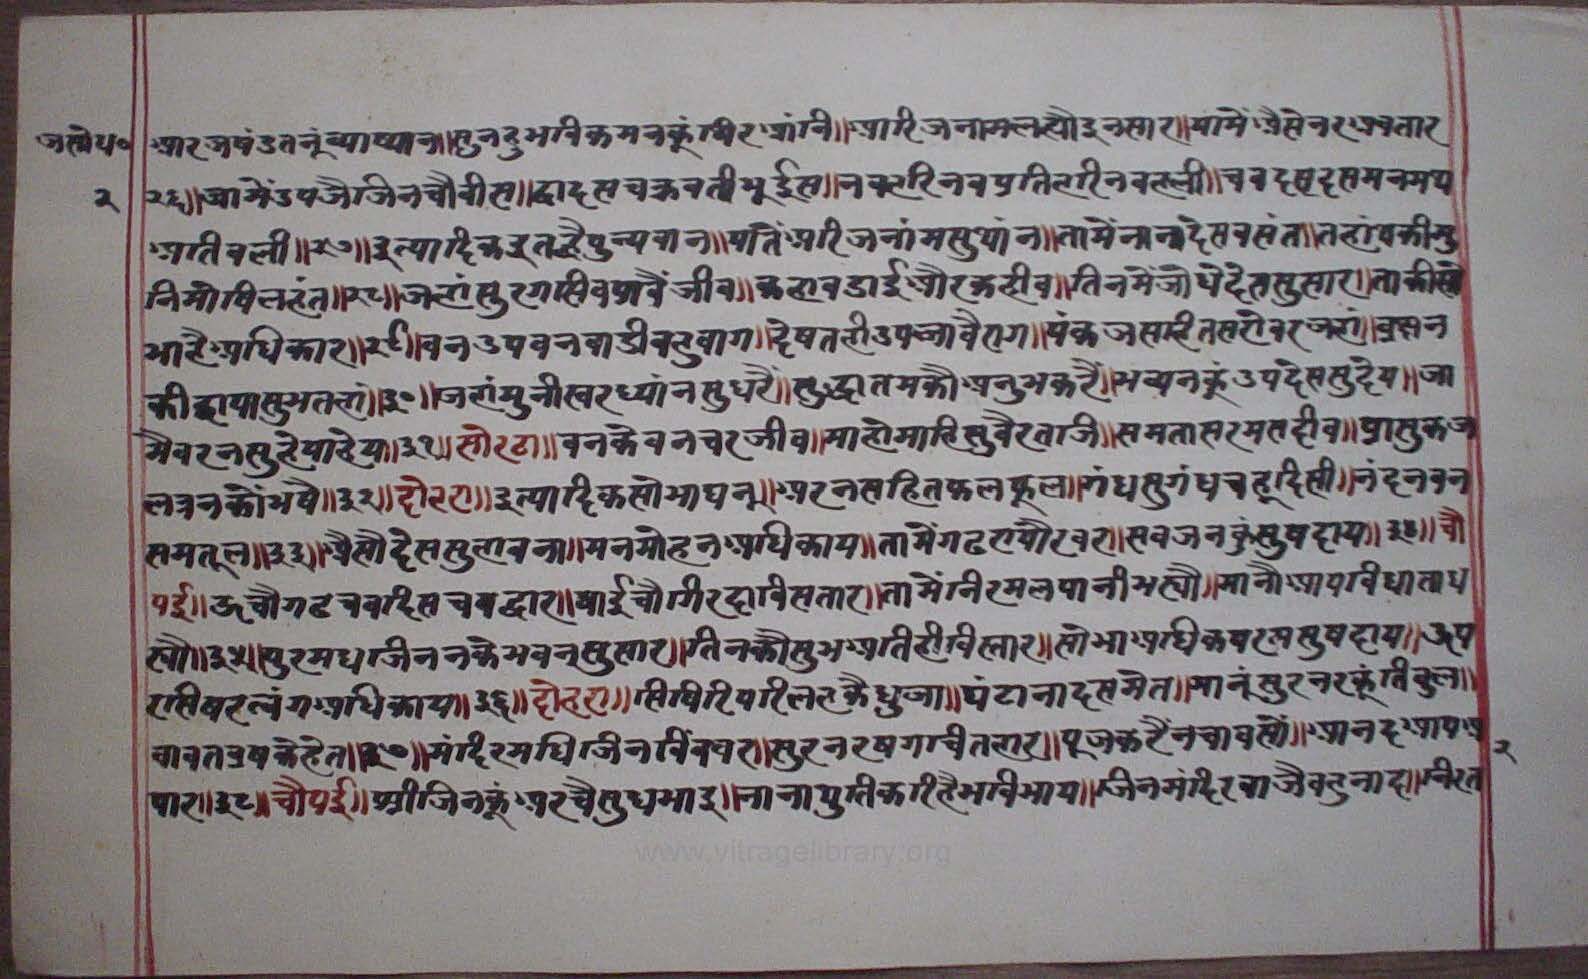 जसोध० आरजषंडतनूं व्याष्यान॥सुनहु भविक मन कूं थिर आंनि॥आरिज नाम लह्यौ इनसार॥यामें अैसे नर अवतार
२ २६॥जामें उपजै जिन चौवीस॥द्वादस चक्रवर्ती भू ईस॥नव हरि नव प्रतिहरि नव हली॥चव दस दस मनमथ
अती वली॥२७॥इत्यादिक इत ह्वै पुन्यवान॥यातैं अरिज नांम सुथांन॥तामें नाना देस वसंत॥तहां पकी मु
नि मोषि लहंत॥२८॥जहां सुरग सिव पावैं जीव॥कहा वडाई और कहीव॥तिनमें जोधेदेस सुसार॥ताकी सो
भा है अधिकार॥२९॥वन उपवन वाडी वहु वाग॥देषत ही उपजावै राग॥पंकज सहित सरोवर जहां॥व्रछन
की छाया सुभ तहां॥३०॥जहां मुनीस्वर ध्यांन सुधरैं॥सुद्धातमकौ अनुभ करैं॥भव्यन कूं उपदेस सुदेय॥जा
मै वरन सु हेयादेय॥३१॥सोरठा॥वन के वनचर जीव॥माहोमाहि सु वैर तजि॥समतासर मतदीव॥प्रासुक ज
ल त्रन कों भषै॥३२॥दोहरा॥इत्यादिक सोभा घनू॥अर नस हित फल फूल॥गंध सुगंध चहू दिसी॥नंदन वन
सम तूल॥३३॥अैसौ देस सुहावना॥मनमोहन अधिकाय॥तामें गढ राथौर वरा॥सव जन कुं सुषदाय॥३४॥चौ
पई॥ऊचौ गढ चव दिस चव द्वार॥षाई चौगिरदा विसतार॥तामें निरमल पानी भर्‍यौ॥मानौ आप विधाता ध
र्‍यौ॥३५॥पुर मध जिनन के भवन सुसार॥तिनकौ सुभ अति ही विस्तार॥सोभा अधिक वरन सुषदाय॥ऊप
रि सिषर त्वंग अधिकाय॥३६॥दोहरा॥सिषिर परि लहकै धुजा॥घंटा नाद समेत॥मानूं सुर नर कूं ति वुल॥
वावत व्रष के हेत॥३७॥मंदिर मधि जिन विंव वर॥सुर नर षग चित हार॥पूजा करैं नव चावसौं॥आनद आप अ
पार॥३८॥चौपई॥श्री जिन कूं अरचै सुध भाइ॥नाना थुति करि है भवि भाय॥जिन मंदिर वाजै वहु नाद॥निरत
२
www.vitragelibrary.org